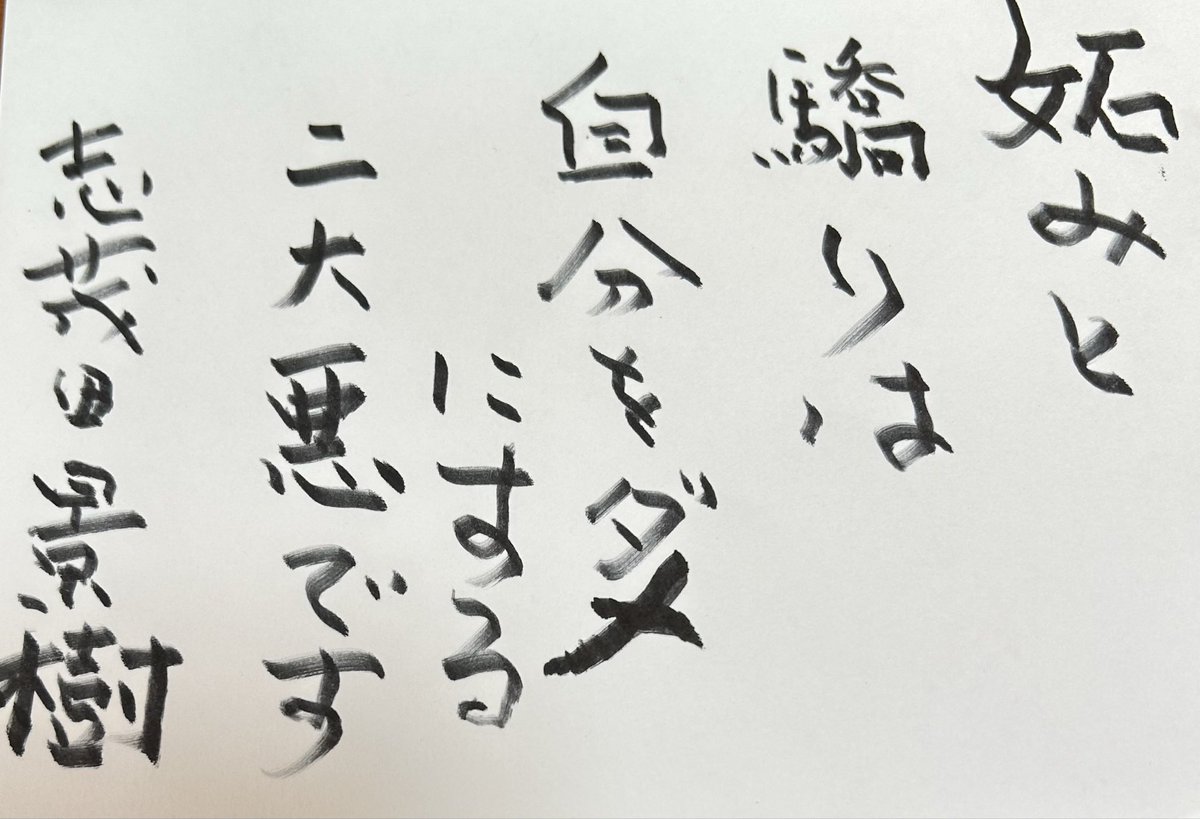 妬みと
驕りは、
自分をダメ
にする
二大悪です
志茂田景樹